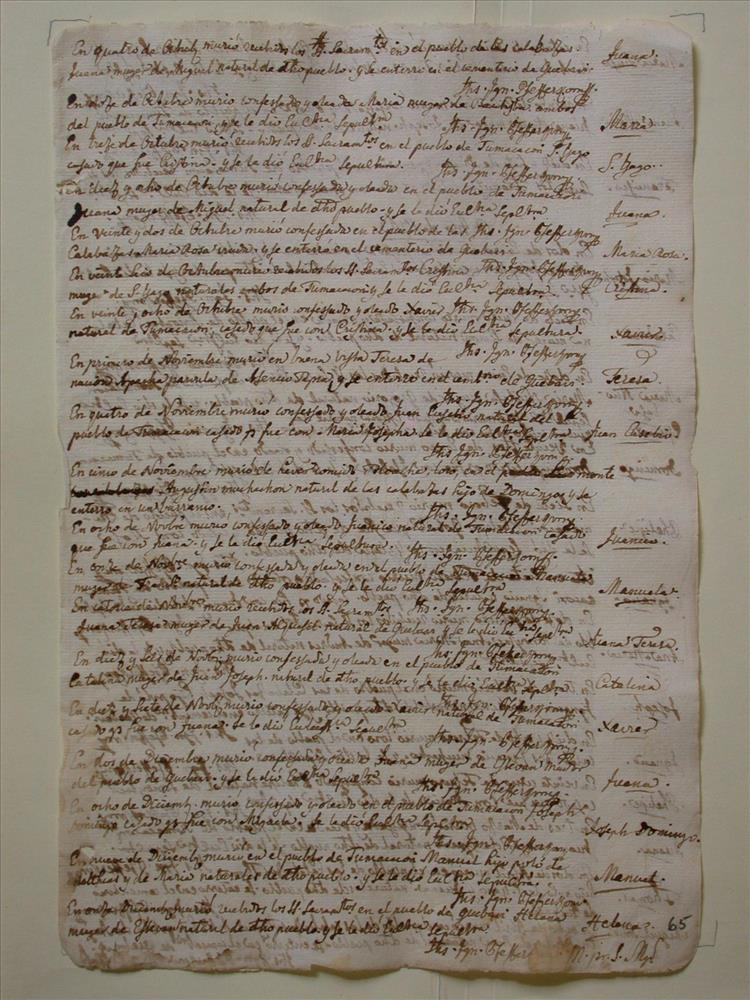 En quatro de Octub. murió recibidos los SS. Sacram.tos en el pueblo de las Calabazas Juana.
Juana muger de Miguel natural de dho pueblo. y se enterró en el cementerio de Guebavi.
Jhs. Ign. Pfefferkorn
En onze de Octubre murio confessada y oleada Maria muger de ambos Maria
del pueblo de Tumacacori y se le dio Ecl.ca Sepultura Jhs. Ign. Pfefferkorn
En treze de Octubre murio recibidos los SS. Sacramtos en el pueblo de Tumacacori S.Yago S.Yago.
casado que fue Cristina. y se le dio Ecl.ca sepultura. Jhs. Ign. Pfefferkorn
En diez y ocho de Octubre murio confessada y oleada en el pueblo de Tumacacori
Juana muger de Miguel natural de dho pueblo. y se le dio Ecl.ca Sepltra Juana.
En veinte y dos de Octubre murió confessada en el pueblo de las Jhs. Ign. Pfefferkorn
Calabazas Maria Rosa viuda. y se enterró en el cementerio de Guebavi. Maria Rosa.
En veinte Seis de Octubre murio recibidos los SS. Sacramtos Cristina Jhs. Ign. Pfefferkorn
muger de S.Yago naturales ambos de Tumacacori y se le dio Ecl.ca Sepultura Cristina.
En veinte y ocho de Octubre murio confessado y oleado Xavier Jhs. Ign. Pfefferkorn
natural de Tumacacori casado que fue con Cristina. y se le dio Ecl.ca Sepultura. Xavier
En primero de Noviembre murió en buena vista Teresa de Jhs. Ign. Pfefferkorn
nación Apacha parvula de Asencio Tapia y se enterró en el cemtrio de Guebavi. Teresa.
Jhs. Ign. Pfefferkorn
En quatro de Noviembre murió confessado y oleado Juan Eusebio natural del
pueblo de Tumacacori casado q fue con Maria Josepha. se le dio Ecl.ca Sepltra Juan Eusebio.
Jhs. Ign. Pfefferkorn
En cinco de Noviembre murió de haver comido en el monte
Augustin muchachon natural de las calabazas hijo de Domingo y se
enterro en un barranco. Jhs. Ign. Pfefferkorn
En ocho de Novbre murio confessado y oleado Juanico natural de Tumacacori casado
que fue con Juana. y se le dio Ecl.ca Sepultura. Juanico.
Jhs. Ign. Pfefferkorn
En onze de Nov.re murió confessada y oleada en el pueblo de Tumacacori Manuela
muger de natural de dho pueblo. y se le dio Ecl.ca Sepultra Manuela.
En catorze de Nov.re murio recibidos los SS. Sacramtos Jhs. Ign. Pfefferkorn
Juana Teresa muger de Juan natural de Guebavi y se le dio Ecl.ca Sepltra Juana Teresa.
Jhs. Ign. Pfefferkorn
En diez y seis de Novb. murio confessada y oleada en el pueblo de Tumacacori
Catalina muger de Joseph. natural de dho pueblo. y se le dio Ecl.ca Sepltra Catalina
En diez y siete de Novb. murio confessado y oleado Xavier natural de Tumacacori Jhs. Ign. Pfefferkorn
casado q fue con Juana. se le dio Sepultra Xavier
Jhs. Ign. Pfefferkorn
En dos de Diciembre murio confessada y oleada Juana muger de
del pueblo de Guebavi. y se le dio Ecl.ca Sepultra Juana.
Jhs. Ign. Pfefferkorn
En ocho de Diciemb. murio confessado y oleado en el pueblo de Tumacacori Joseph
Domingo casado q fue con Micaela. se le dio Ecl.ca Sepltra Joseph Domingo.
Jhs. Ign. Pfefferkorn
En nueve de Diciemb. murio en el pueblo de Tumacacori Manuel hijo de
y de Maria naturales de dho pueblo. y se le dio Ecl.ca sepultura. Manuel.
Jhs. Ign. Pfefferkorn
En onze Diciemb. murió recibidos los SS. Sacramtos en el pueblo de Guebavi Helena
muger de Estevan natural de dho pueblo y se le dio Ecl.ca Sepultra Helena. 65
Jhs. Ign. Pfefferkorn M. pr. S. Mgl